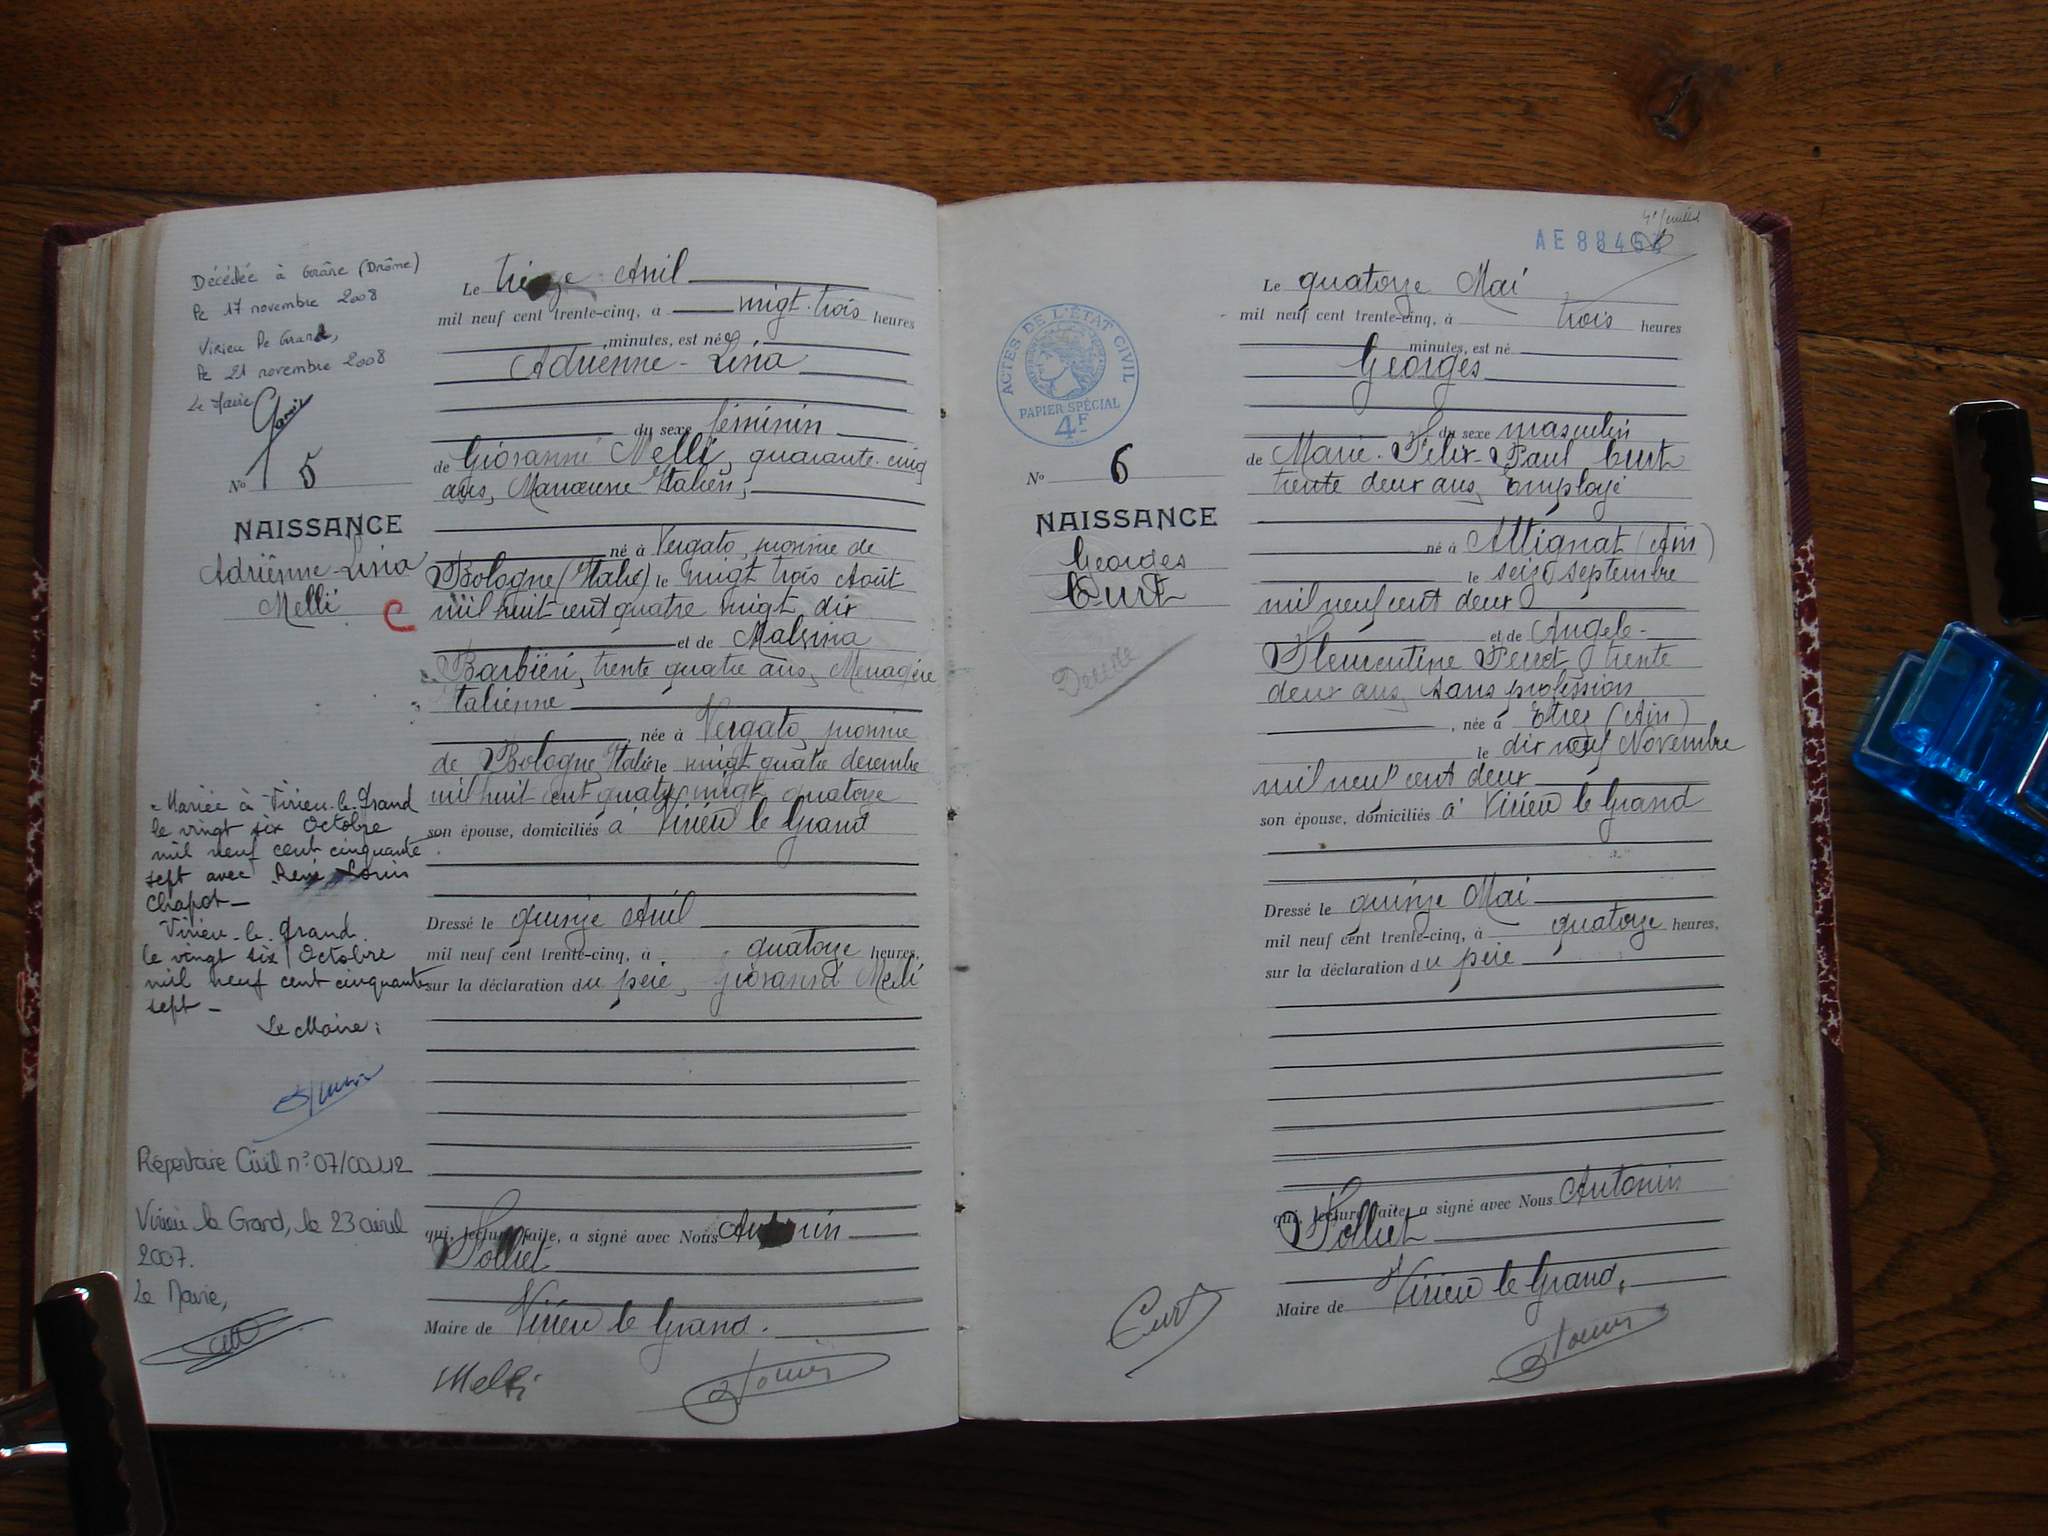 Décédée à Grâne (Drôme)
le 17 novembre 2008
Virieu le Grand,
le 21 novembre 2008
Le Maire
N° 5
NAISSANCE
Adrienne-Lina
Melli
C
Mariée à Virieu-le-Grand
le vingt six Octobre
mil neuf cent cinquante
sept avec René Louis
Chapot—
Virieu-le-Grand
le vingt six Octobre
mil neuf cent cinquante
sept —
Le Maire:
Répertoire Civil n° 07/00112
Virieu le Grand, le 23 avril
2007.
Le Maire,
Le treize Avril
mil neuf cent trente-cinq, à vingt-trois heures
minutes, est née
Adrienne-Lina
du sexe féminin
de Giovanni Melli, quarante-cinq
ans, Manoeuvre Italien,
né à Vergato, province de
Bologne (Italie) le vingt trois Août
mil huit cent quatre vingt dix
et de Malvina
Barbiéri, trente quatre ans, Menagère
Italienne
, née à Vergato, province
de Bologne, Italie le vingt quatre décembre
mil huit cent quatre vingt quatorze
son épouse, domiciliés à Virieu le Grand
Dressé le quinze Avril
mil neuf cent trente-cinq, à quatorze heures,
sur la déclaration du père, Giovanni Melli
qui, lecture faite, a signé avec Nous Antonin
Polliet
Maire de Virieu le Grand.
Melli
AE 8845
ACTES DE L'ÉTAT CIVIL
PAPIER SPÉCIAL
4F
N° 6
NAISSANCE
Georges
Curt
Le quatorze Mai
mil neuf cent trente-cinq, à trois heures
minutes, est né
Georges
du sexe masculin
de Marie-Félix-Paul Curt
trente deux ans, Employé
né à Attignat (Ain)
le seize septembre
mil neuf cent deux
et de Angèle-
Clémentine Perret, trente
deux ans, sans profession
, née à Etrez (Ain)
le dix neuf Novembre
mil neuf cent deux
son épouse, domiciliés à Virieu le Grand
Dressé le quinze Mai
mil neuf cent trente-cinq, à quatorze heures,
sur la déclaration du père
qui, lecture faite, a signé avec Nous Antonin
Polliet
Maire de Virieu le Grand,
Curt